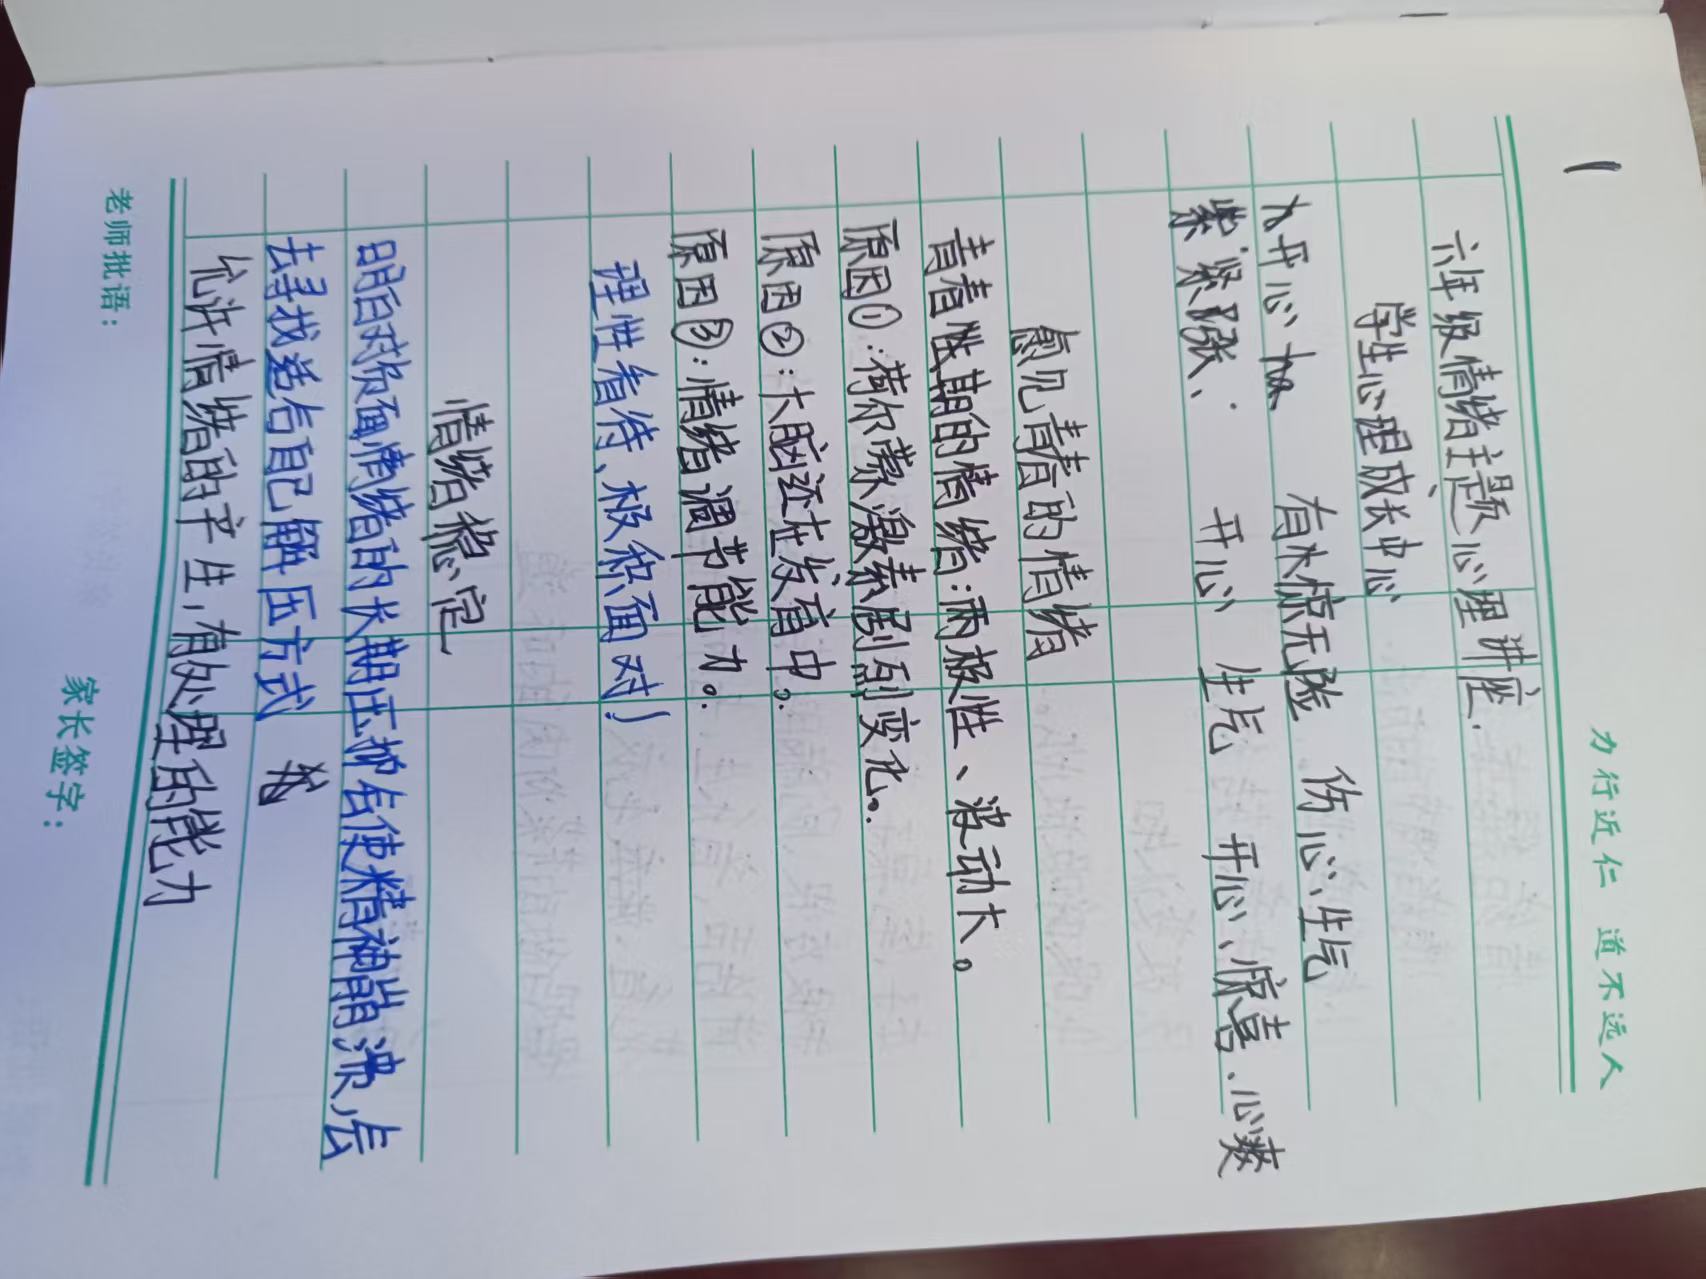 力行近仁 道不远人
1
六年级情绪主题心理讲座.
学生心理成长中心
开心 有木惊无险 伤心、生气
紧张、 开心 生气 开心、惊喜、心爽
意见青春的情绪
青春性期的情绪：两极性、波动大。
原因①：荷尔蒙激素剧烈变化。
原因②：大脑还在发育中。
原因③：情绪调节能力。
理性看待、极积面对！
情绪稳定
明白对负面情绪的长期压抑会使精神崩溃，会
去寻找适合自己解压方式
允许情绪的产生，有处理的能力
老师批语：
家长签字：